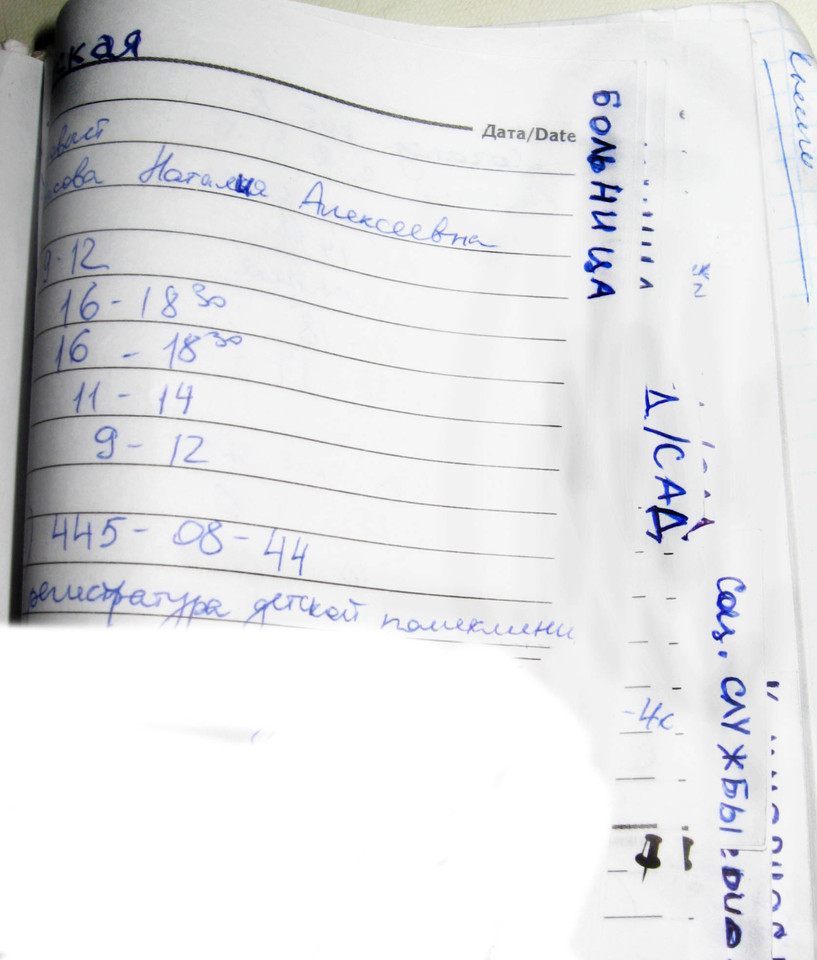 ская
Дата/Date
Наталия Алексеевна
9-12
16-18 30
16 - 18 30
11 - 14
9 - 12
445-08-44
регистратура детской поликлиники
БОЛЬНИЦА
Д/САД
Соц. СЛУЖБЫ